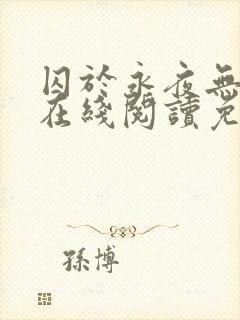 囚於永夜無
在綫閱讀免
孫博